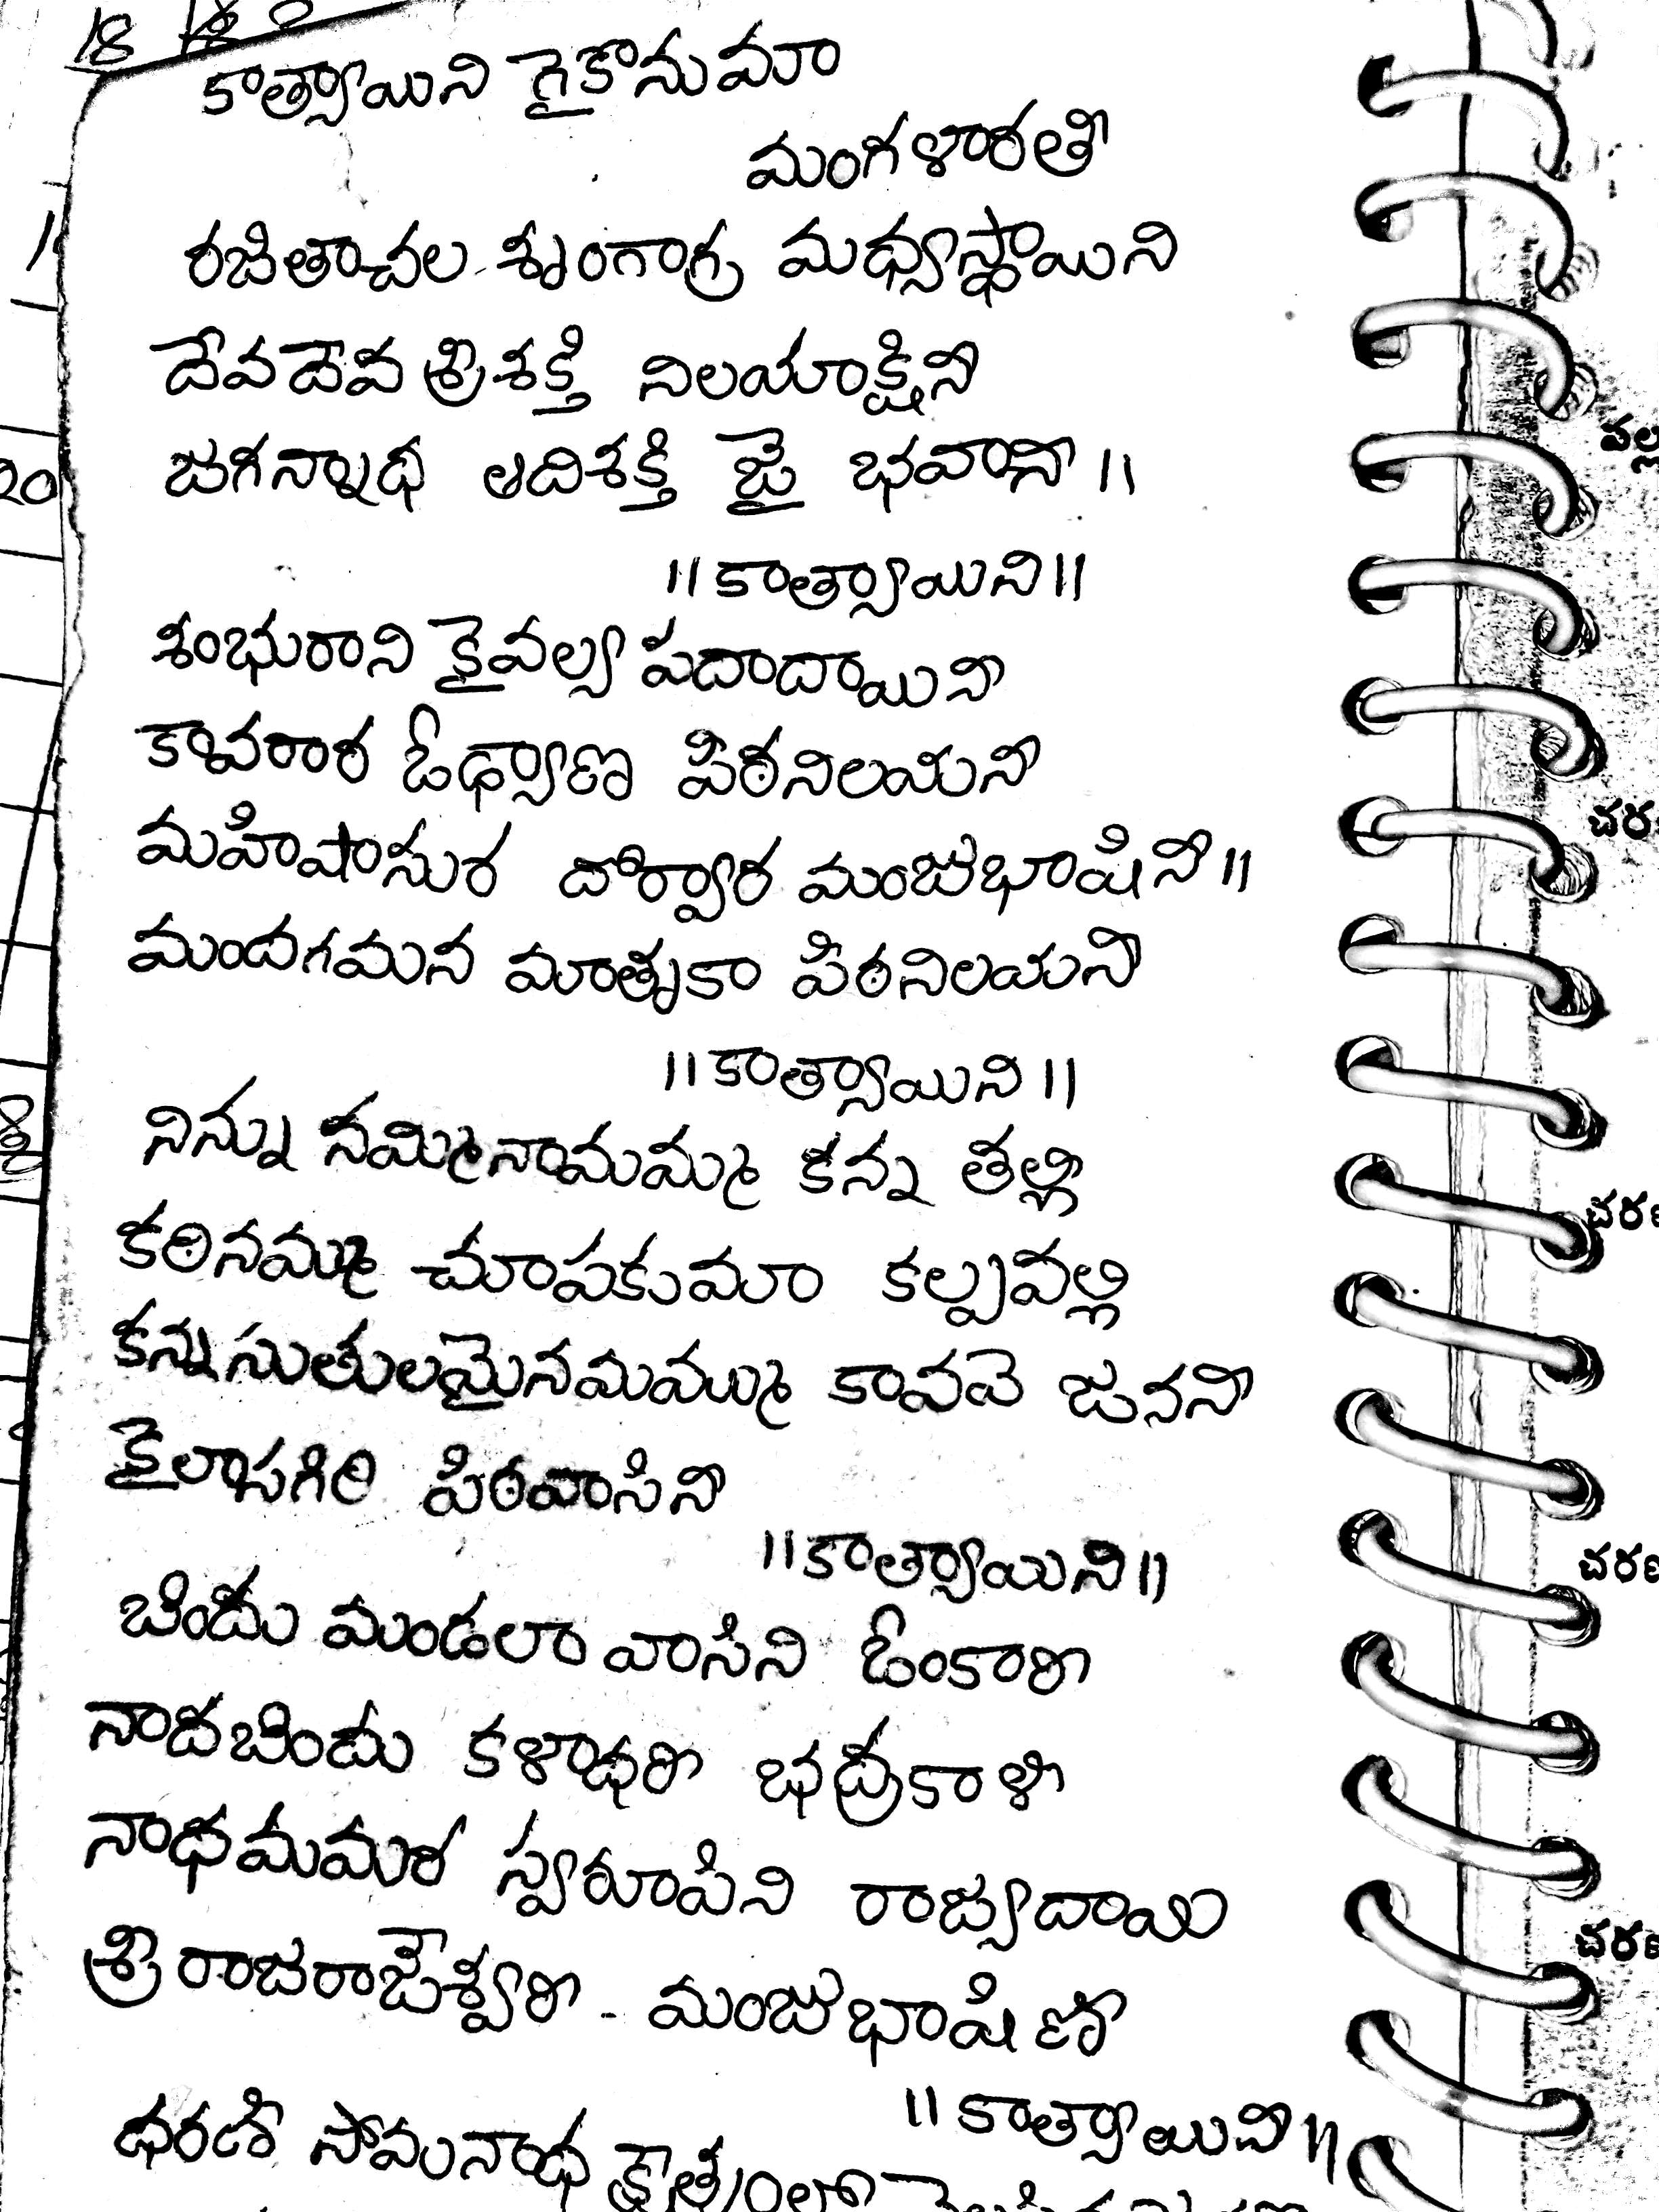 18 18
కాత్యాయిని గైకొనుమా
మంగళారతీ
రజితాచల శృంగాగ్ర మధ్యస్థాయిని
దేవదేవ శ్రీశక్తి నిలయాక్షినీ
జగన్నాథ ఆదిశక్తి జై భవానీ ॥
॥ కాత్యాయిని ॥
శంభురాని కైవల్య పదాదాయినీ
కావరార ఓఢ్యాణ పిఠనిలయినీ
మహిషాసుర దోర్వార మంజుభాషినీ ॥
మందగమన మాతృకా పిఠనిలయనీ
॥ కాత్యాయిని ॥
నిన్ను నమ్మినామమ్మ కన్న తల్లీ
కఠినమ్ము చూపకుమా కల్పవల్లి
కన్నసుతులమైనమమ్ము కావవె జననీ
కైలాసగిరి పిఠవాసినీ
॥ కాత్యాయిని ॥
బిందు మండలా వాసిని ఓంకారీ
నాదబిందు కళాధరీ భద్రకాళీ
నాధమమర స్వరూపిని రాజ్యదాయి
శ్రీ రాజరాజేశ్వరీ - మంజుభాషిణీ
॥ కాత్యాయినీ ॥
ధరణి సోమనాథ